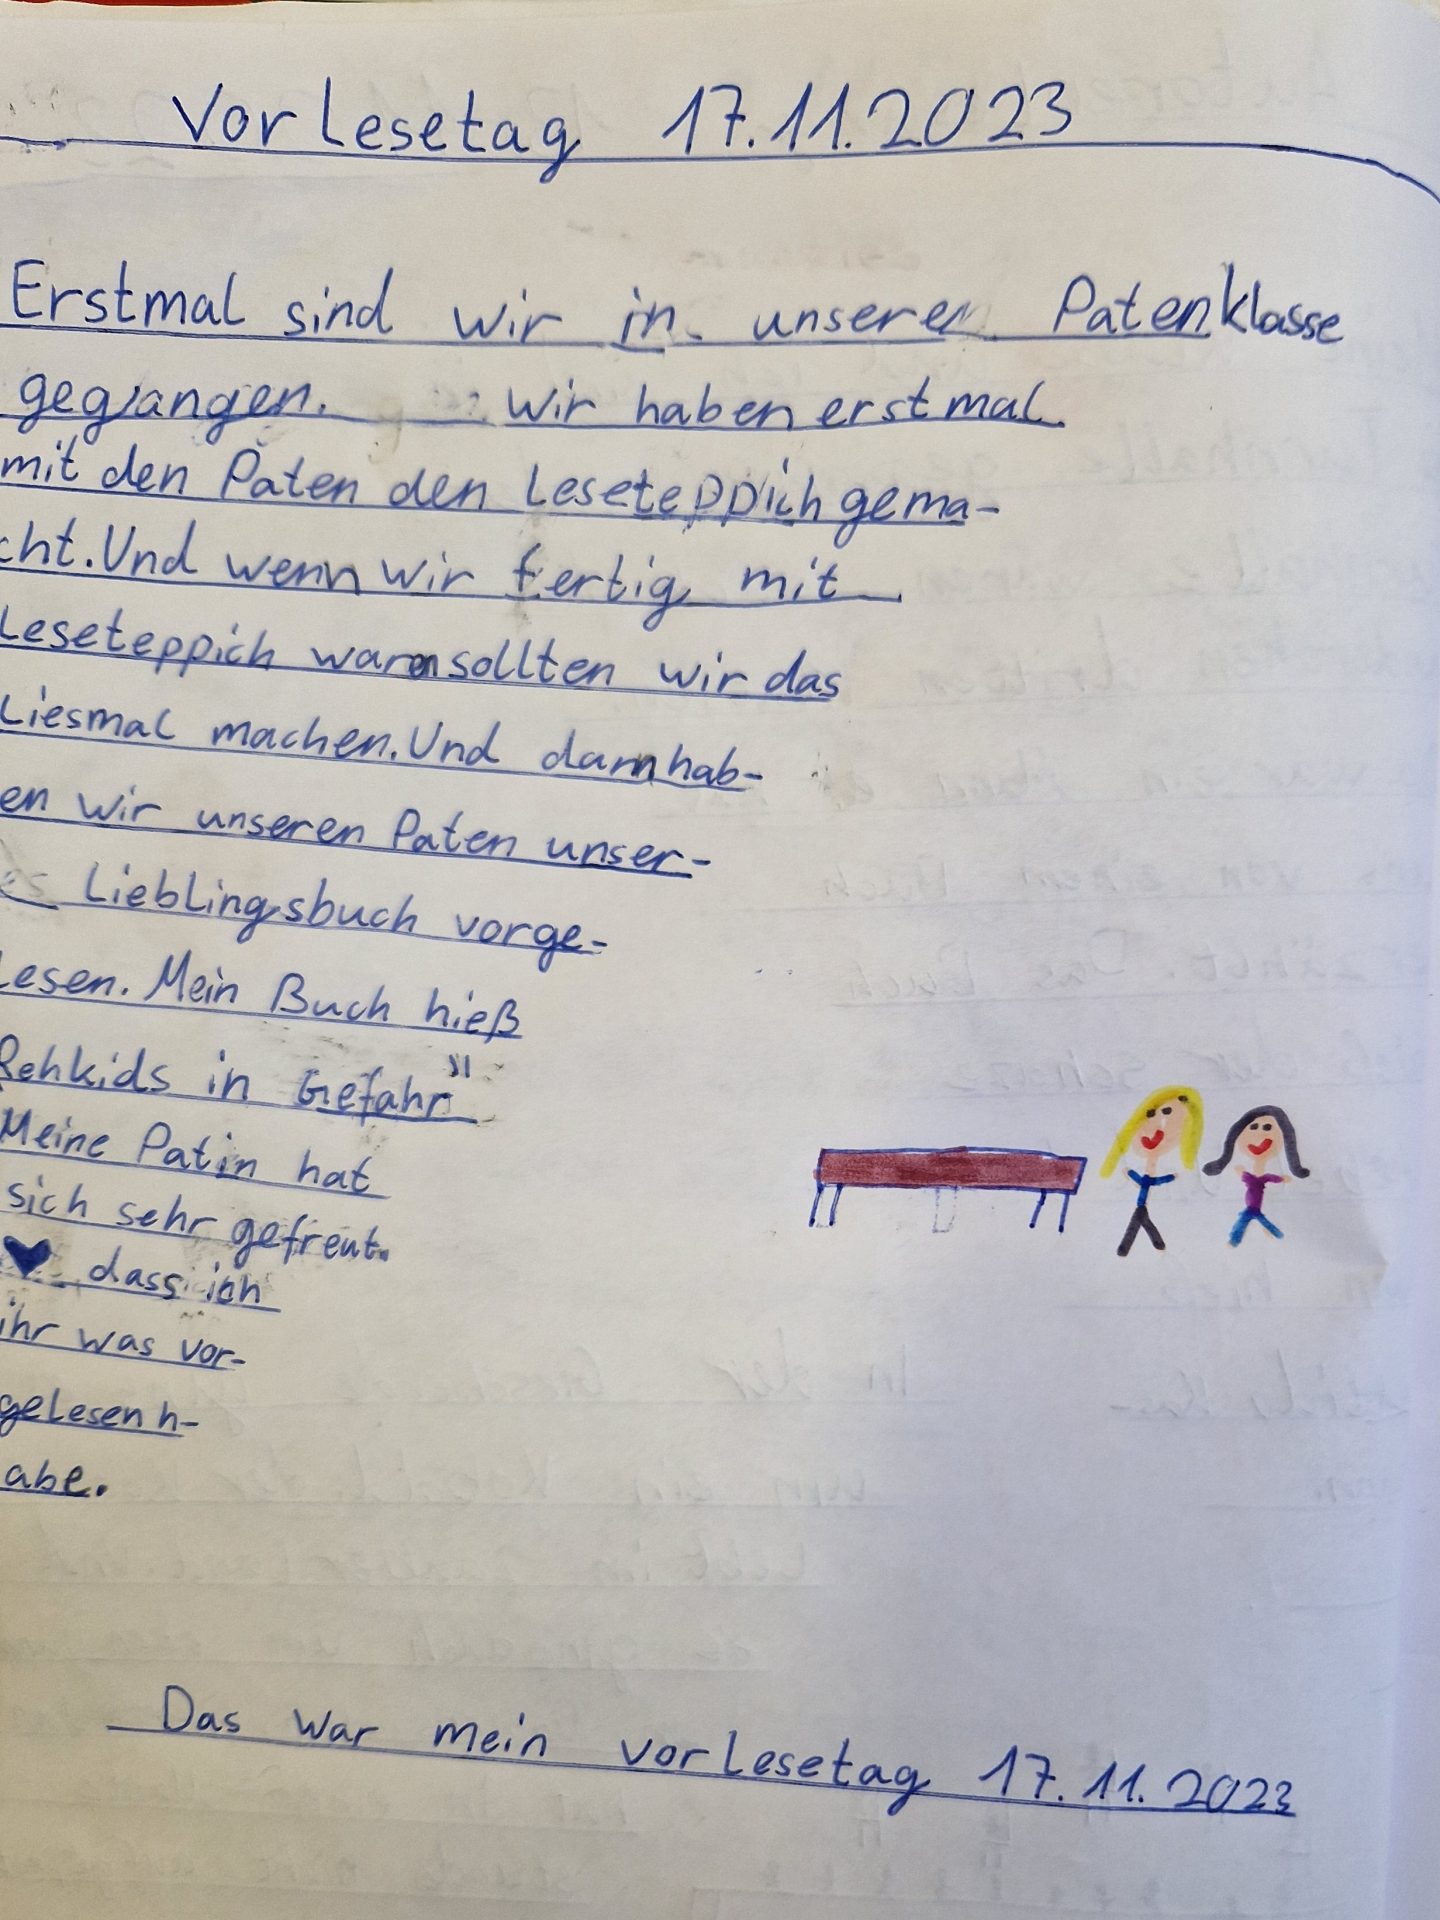 Vorlesetag 17.11.2023
Erstmal sind wir in unserer Patenklasse
gegangen. Wir haben erstmal
mit den Paten den Leseteppich gema-
cht. Und wenn wir fertig mit
Leseteppich waren sollten wir das
Liesmal machen. Und dann hab-
en wir unseren Paten unser-
es Lieblingsbuch vorge-
lesen. Mein Buch hieß
Rehkids in Gefahr"
Meine Patin hat
sich sehr gefreut.
dass ich
ihr was vor-
gelesen h-
abe.
Das war mein vorlesetag 17.11.2023